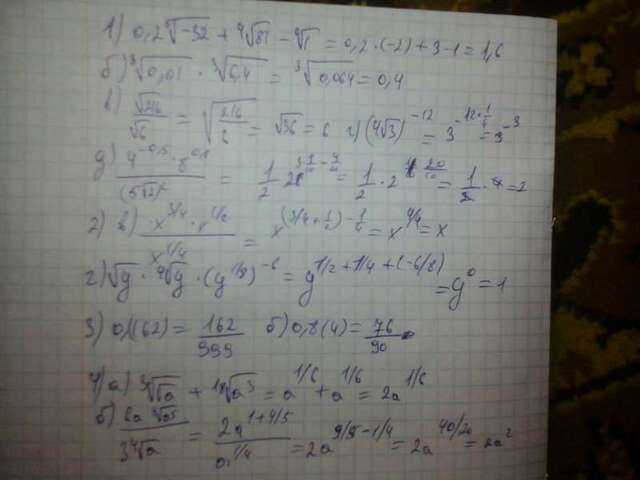 1) 0,2 ⁵√-32 + ⁴√81 - ⁶√1 = 0,2·(-2) + 3 - 1 = 1,6
б) ³√0,01 · ³√6,4 = ³√0,064 = 0,4
в) √216/√6 = √(216/6) = √36 = 6 г) (⁴√3)^-12 = 3^(-12·1/4) = 3^-3
= 1/2 · 2 = 2
2) в) x^3/4 · x^1/2 / x^1/4 = x^(3/4 + 1/2) - 1/4 = x^4/4 = x
г) √y · ⁴√y · (y^1/8)^-6 = y^1/2 + 1/4 + (-6/8) = y^0 = 1
3) 0,(162) = 162/999 б) 0,8(4) = 76/90
4) а) ³√√a + ¹⁸√a³ = a^1/6 + a^1/6 = 2a^1/6
б) = 2a^1+4/5 / a^1/4 = 2a^9/5-1/4 = 2a^40/20 = 2a²